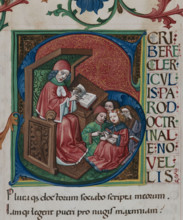 CRI
BERE
CLER
ICVL
IS PA
RO D
OCTR
INAL
E NO
VEL
LIS
Pluraq3 doctorum sociabo scripta meorum
Iamq3 legent pueri pro nugis maximiani